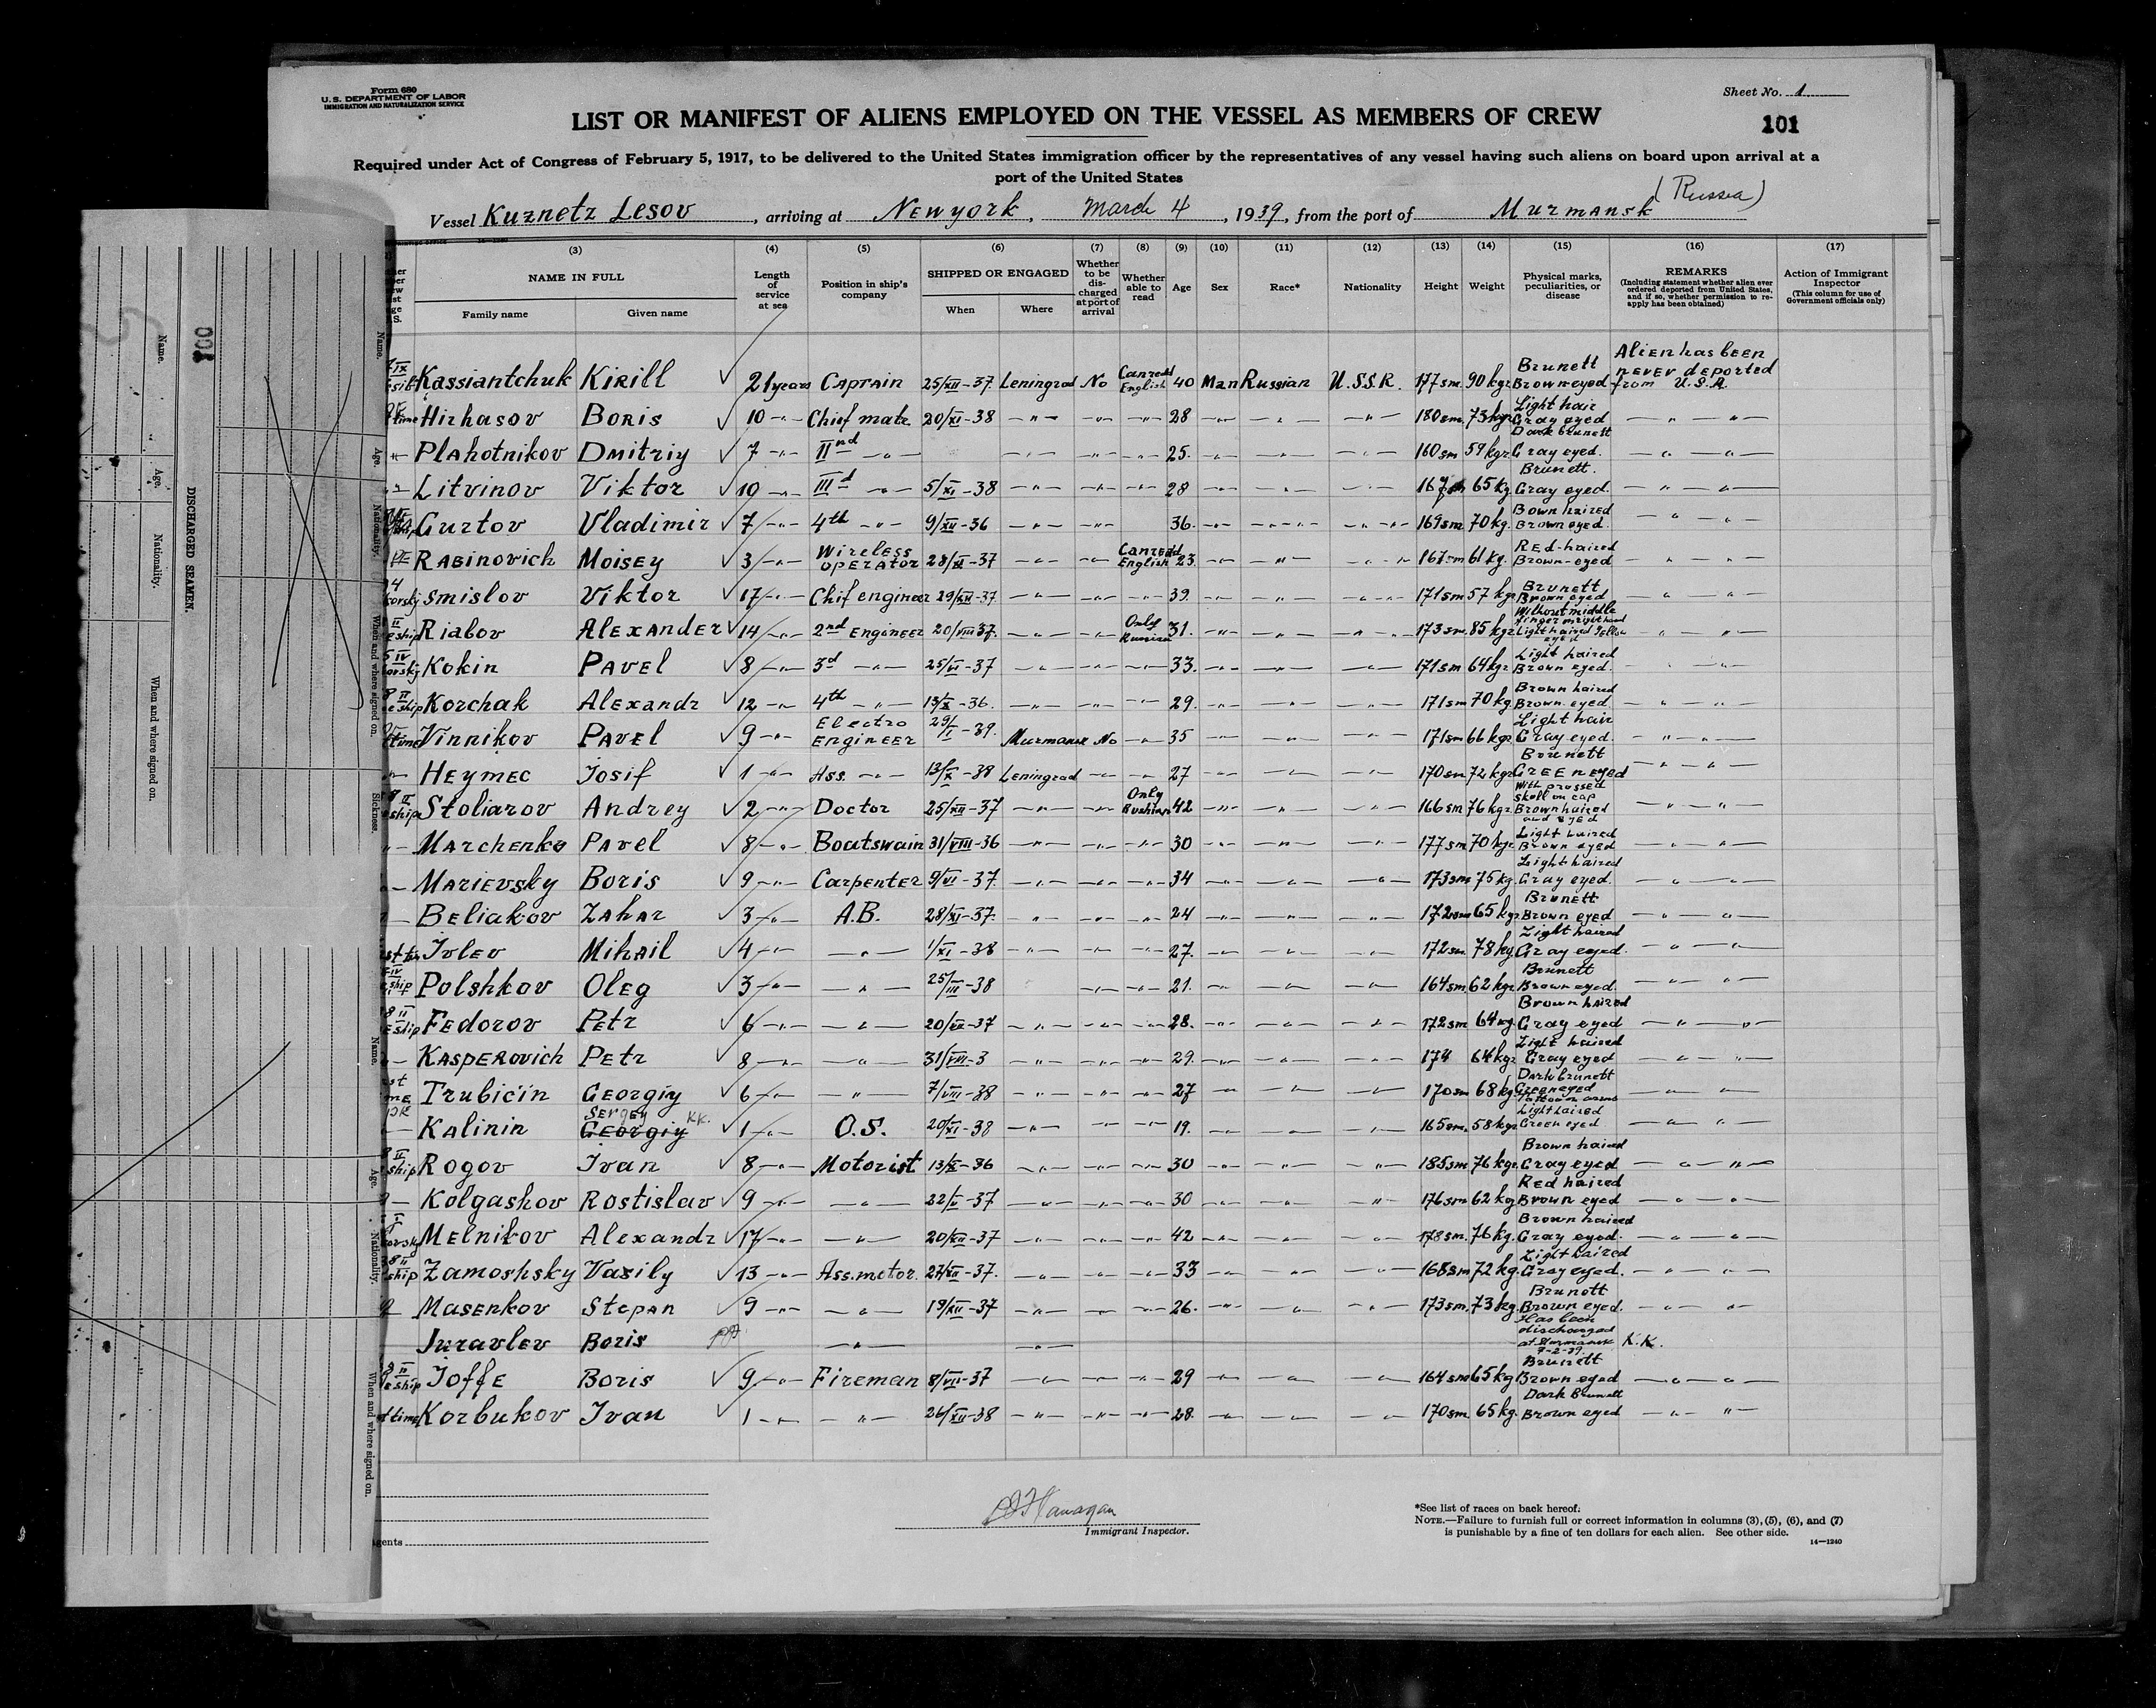 Form 680
U.S. DEPARTMENT OF LABOR
IMMIGRATION AND NATURALIZATION SERVICE
Sheet No. 1
101
LIST OR MANIFEST OF ALIENS EMPLOYED ON THE VESSEL AS MEMBERS OF CREW
Required under Act of Congress of February 5, 1917, to be delivered to the United States immigration officer by the representatives of any vessel having such aliens on board upon arrival at a
port of the United States
Vessel Kuznetz Lesov, arriving at New york, March 4, 1939, from the port of Murmansk (Russia)
(3) (4) (5) (6) (7) (8) (9) (10) (11) (12) (13) (14) (15) (16) (17)
NAME IN FULL
Family name Given name
Length of service at sea
Position in ship's company
SHIPPED OR ENGAGED
When Where
Whether to be discharged at port of arrival
Whether able to read
Age
Sex
Race*
Nationality
Height
Weight
Physical marks, peculiarities, or disease
REMARKS
(Including statement whether alien ever ordered deported from United States, and if so, whether permission to re-apply has been obtained)
Action of Immigrant Inspector
(This column for use of Government officials only)
Kassiantchuk Kirill ✓ 21 years Captain 25/XII-37 Leningrad No Can read English 40 Man Russian U.S.S.R. 177 sm. 90 kgr. Brunett Brown eyed Alien has been never deported from U.S.A.
Boris ✓ 10 -"- Chief mate 20/XI-38 -"- -"- -"- 28 -"- -"- -"- 180 sm. 73 kgr. Light hair Gray eyed -"- -"-
Plahotnikov Dmitriy ✓ 7 -"- IInd -"- -"- -"- -"- 25. -"- -"- -"- 160 sm 59 kgr. Dark brunett Gray eyed. -"- -"-
Litvinov Viktor ✓ 10 -"- IIId -"- 5/XI-38 -"- -"- -"- 28 -"- -"- -"- 65 kg. Brunett. Gray eyed. -"- -"-
Gurtov Vladimir ✓ 7 -"- 4th -"- 9/XII-36 -"- -"- 36. -"- -"- -"- 169 sm. 70 kg. Bown haired Brown eyed. -"- -"-
Rabinovich Moisey ✓ 3 -"- Wireless operator 28/XI-37 -"- -"- Can read English 23. -"- -"- -"- 167 sm 61 kg. Red-haired Brown-eyed -"- -"-
Smislov Viktor ✓ 17 -"- Chif engineer 29/XII-37 -"- -"- -"- 39. -"- -"- -"- 171 sm 57 kgr. Brunett Brown eyed -"- -"-
Riabov Alexander ✓ 14 -"- 2nd Engineer 20/VIII 37. -"- -"- Only 31. -"- -"- -"- 173 sm. 85 kgr. Without middle finger on right hand Light haired Yellow eyed -"- -"-
Kokin Pavel ✓ 8 -"- 3d -"- 25/VI-37 -"- -"- -"- 33. -"- -"- -"- 171 sm 64 kgr. Light haired Brown eyed. -"- -"-
Korchak Alexandr ✓ 12 -"- 4th -"- 13/X-36. -"- -"- -"- 29. -"- -"- -"- 171 sm 70 kg. Brown haired Brown eyed. -"- -"-
Vinnikov Pavel ✓ 9 -"- Electro Engineer 29/I-39. Murmansk No -"- 35 -"- -"- -"- 171 sm 66 kgr. Light hair Gray eyed. -"- -"-
Heymec Josif ✓ 1 -"- Ass. -"- 13/X-38 Leningrad -"- -"- 27 -"- -"- -"- 170 sm 72 kgr. Brunett Green eyed -"- -"-
Stoliarov Andrey ✓ 2 -"- Doctor 25/XII-37 -"- -"- Only 42 -"- -"- -"- 166 sm 76 kgr. Brown haired and eyed -"- -"-
Marchenko Pavel ✓ 8 -"- Boatswain 31/VIII-36 -"- -"- -"- 30 -"- -"- -"- 177 sm 70 kgr. Light haired Brown eyed -"- -"-
Marievsky Boris ✓ 9 -"- Carpenter 9/VI-37. -"- -"- -"- 34 -"- -"- -"- 173 sm 75 kg. Light haired Gray eyed. -"- -"-
Beliakov Zahar ✓ 3 -"- A.B. 28/XI-37. -"- -"- -"- 24 -"- -"- -"- 172 sm 65 kgr. Brunett Brown eyed -"- -"-
Ivlev Mihail ✓ 4 -"- -"- 1/XI-38 -"- -"- -"- 27. -"- -"- -"- 172 sm. 78 kg. Light haired Gray eyed. -"- -"-
Polshkov Oleg ✓ 3 -"- -"- 25/III-38 -"- -"- 21. -"- -"- -"- 164 sm. 62 kgr. Brunett Brown eyed. -"- -"-
Fedorov Petr ✓ 6 -"- -"- -"- -"- -"- 28. -"- -"- -"- 172 sm. 64 kg. Brown haired Gray eyed -"- -"-
Kasperovich Petr ✓ 8 -"- -"- 31/VIII-3 -"- -"- -"- 29. -"- -"- -"- 174 64 kgr. Light haired Gray eyed -"- -"-
Trubicin Georgiy ✓ 6 -"- -"- 7/VIII-38 -"- -"- -"- 27 -"- -"- -"- 170 sm 68 kg. Dark brunett Green eyed -"- -"-
Kalinin Sergey Georgiy K.K. ✓ 1 -"- O.S. 20/XI-38 -"- -"- -"- 19. -"- -"- -"- 165 sm. 58 kgr. Light haired Green eyed -"- -"-
Rogov Ivan ✓ 8 -"- Motorist 13/X-36 -"- -"- -"- 30 -"- -"- -"- 185 sm 76 kgr. Brown haired Gray eyed -"- -"-
Kolgashov Rostislav ✓ 9 -"- -"- 22/V-37 -"- -"- -"- 30 -"- -"- -"- 176 sm. 62 kg. Red haired Brown eyed -"- -"-
Melnikov Alexandr ✓ 17 -"- -"- 20/XII-37 -"- -"- -"- 42 -"- -"- -"- 178 sm. 76 kg. Brown haired Gray eyed. -"- -"-
Zamoshsky Vasily ✓ 13 -"- Ass. motor. 27/XII-37. -"- -"- -"- 33 -"- -"- -"- 168 sm 72 kg. Light haired Gray eyed. -"- -"-
Masenkov Stepan ✓ 9 -"- -"- 19/XII-37 -"- -"- -"- 26. -"- -"- -"- 173 sm. 73 kg. Brunett Brown eyed. -"- -"-
Juravlev Boris -"- -"- Has been discharged at Murmansk 7-2-39. K.K.
Joffe Boris ✓ 9 -"- Fireman 8/VII-37 -"- -"- -"- 29 -"- -"- -"- 164 sm 65 kg Brunett Brown eyed -"- -"-
Korbukov Ivan ✓ 1 -"- -"- 26/XII-38 -"- -"- -"- 28. -"- -"- -"- 170 sm. 65 kg. Dark Brunett Brown eyed -"- -"-
Immigrant Inspector.
*See list of races on back hereof.
NOTE.—Failure to furnish full or correct information in columns (3), (5), (6), and (7)
is punishable by a fine of ten dollars for each alien. See other side.
14—1240
DISCHARGED SEAMEN.
100
Name.
Age.
Nationality.
When and where signed on.
Name.
Age.
Nationality.
When and where signed on.
Sickness.
Name.
Age.
Nationality.
When and where signed on.